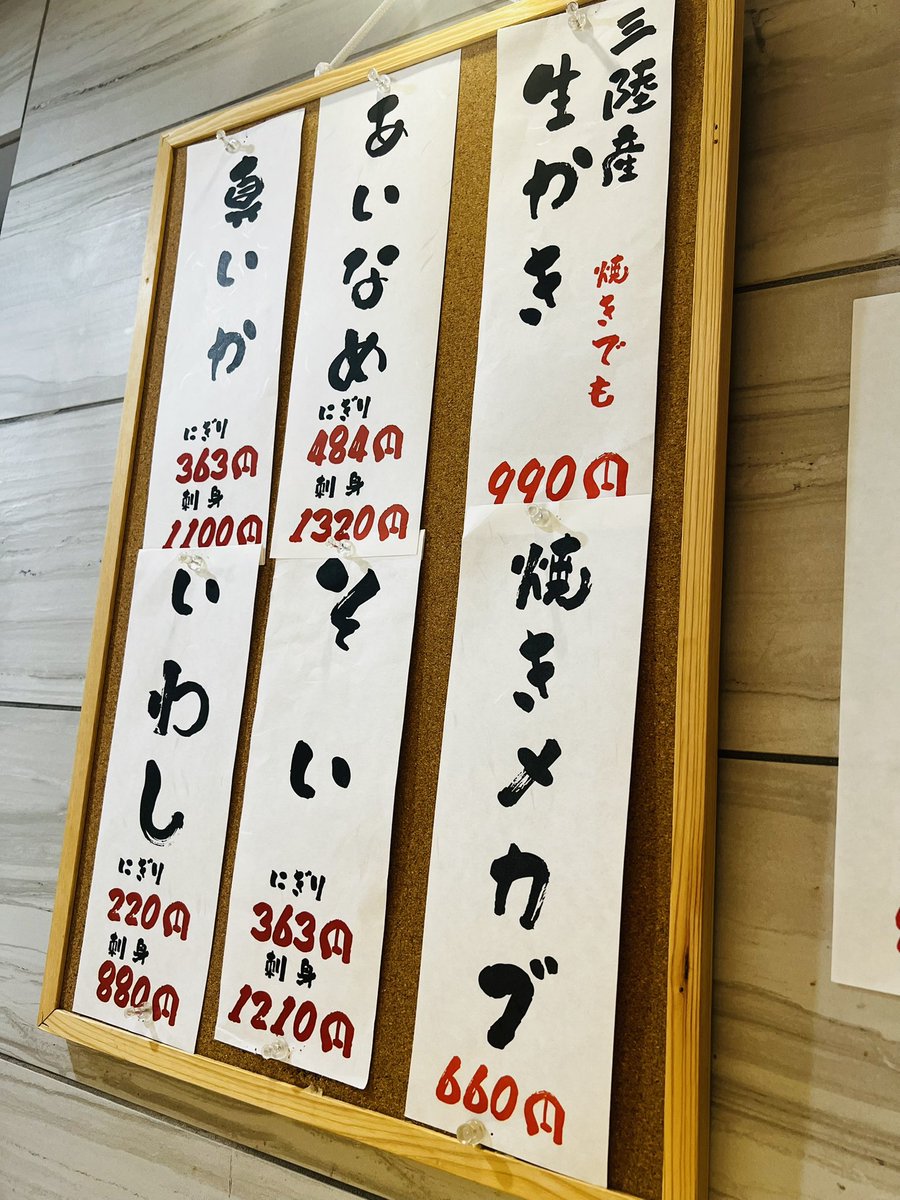 三陸産
生かき
焼きでも
990円
あいなめ
にぎり
484円
刺身
1320円
真いか
にぎり
363円
刺身
1100円
焼きメカブ
660円
そい
にぎり
363円
刺身
1210円
いわし
にぎり
220円
刺身
880円